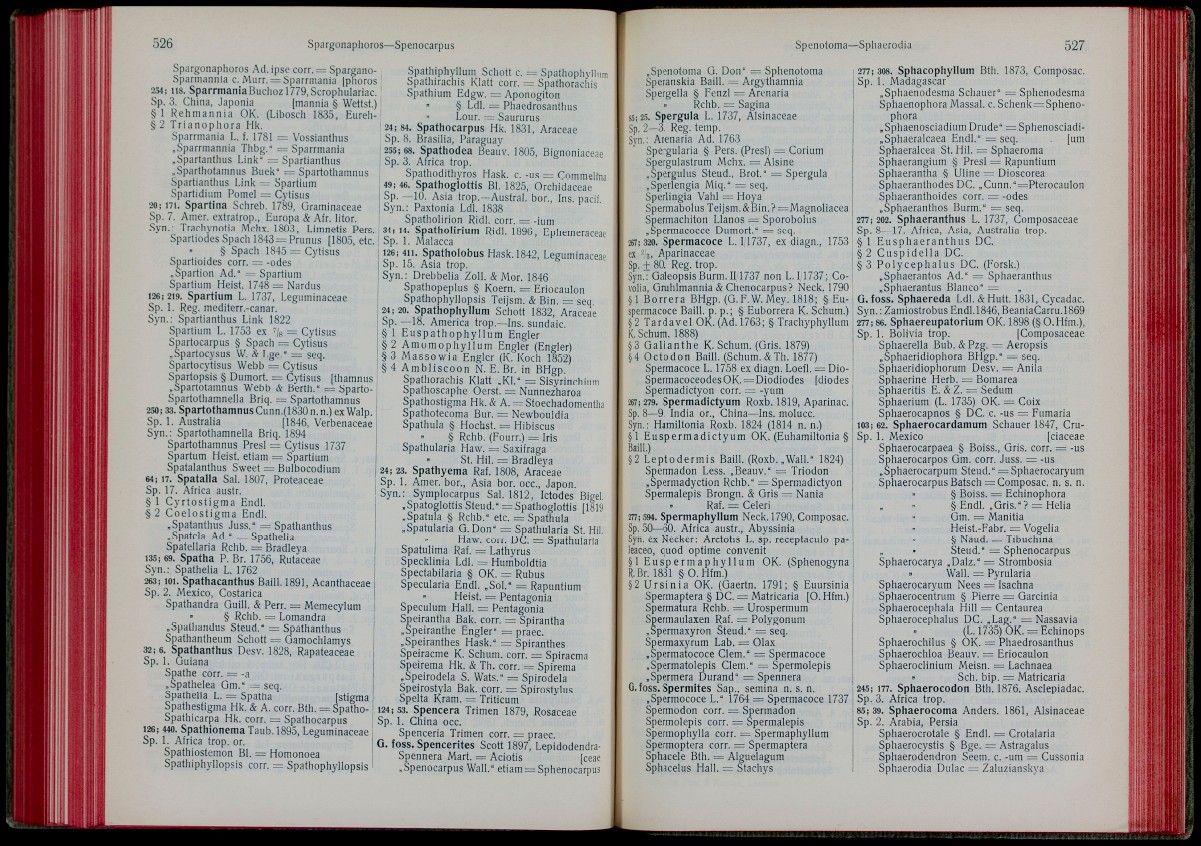 526
Spargonaphoros—Spenocarpus
Spargonaphoros Ad. ipse corr. = Spargano-
Sparmannia c. Murr. = Sparrmania [phoros
254; 118. Sparrmania Buchoz 1779, Scrophulariac.
Sp. 3. China, Japonia [mannia § Wettst.)
§ 1 Rehmannia OK. (Libosch 1835, Eureh-
§ 2 Trianophora Hk.
Sparrmania L. f. 1781 = Vossianthus
„Sparrmannia Thbg.“ = Sparrmania
„Spartanthus Link“ = Spartianthus
„Sparthotamnus Buek“ = Spartothamnus
Spartianthus Link = Spartium
Spartidium Pomel = Cytisus
20; 171. Spartina Schreb. 1789, Graminaceae
Sp. 7. Amer. extratrop., Europa & Afr. litor.
Syn.: Trachynotia Mchx. 1803, Limnetis Pers.
Spartiodes Spach 1843 = Prunus [1805, etc.
„ § Spach 1845 = Cytisus
Spartioides corr. = -odes
„Spartion Ad.“ = Spartium
Spartium Heist. 1748 = Nardus
126; 219. Spartium L. 1737, Leguminaceae
Sp. 1. Reg. mediterr.-canar.
Syn.: Spartianthus Link 1822
Spartium L. 1753 ex 7/8 = Cytisus
Spartocarpus § Spach = Cytisus
„Spartocysus W. & Lge.“ = seq.
Spartocytisus Webb = Cytisus
Spartopsis § Dumort. = Cytisus [thamnus
„Spartotamnus Webb & Berth.“ = Sparto-
Spartothamnella Briq. = Spartothamnus
250; 33. Spartothamnus Cunn. (1830 n. n.) ex Walp.
Sp. 1. Australia [1846, Verbenaceae
Syn.: Spartothamnella Briq. 1894
Spartothamnus Presl = Cytisus 1737
Spartum Heist. etiam = Spartium
Spatalanthus Sweet = Bulbocodium
64; 17. Spatalla Sal. 1807, Proteaceae
Sp. 17. Africa austr.
§ 1 Cyrtostigma Endl.
§ 2 Coelostigma Endl.
„Spatanthus Juss.“ = Spathanthus
„Spatela Ad.“ = Spathelia
Spatellaria Rchb. = Bradleya
135; 69. Spatha P. Br. 1756, Rutaceae
Syn.: Spathelia L. 1762
263; 101. Spathacanthus Baill. 1891, Acanthaceae
Sp. 2. Mexico, Costarica
Spathandra Guill. & Perr. = Memecylum
„ § Rchb. = Lomandra
„Spathandus Steud.“ = Spathanthus
Spathantheum Schott = Gamochlamys
32; 6. Spathanthus Desv. 1828, Rapateaceae
Sp. 1. Guiana
Spathe corr. = -a
„Spathelea Gm.“ = seq.
Spathelia L. = Spatha [stigma
Spathestigma Hk. & A. corr. Bth. = Spatho-
Spathicarpa Hk. corr. = Spathocarpus
126; 440. Spathionema Taub. 1895, Leguminaceae
Sp. 1. Africa trop. or.
Spathiostemon Bl. = Homonoea
Spathiphyllopsis corr. = Spathophyllopsis
Spathiphyllum Schott c. = Spathophyllum
Spathirachis Klatt corr. = Spathorachis
Spathium Edgw. = Aponogiton
„ § Ldl. = Phaedrosanthus
„ Lour. = Saururus
24; 84. Spathocarpus Hk. 1831, Araceae
Sp. 8. Brasilia, Paraguay
255; 68. Spathodea Beauv. 1805, Bignoniaceae
Sp. 3. Africa trop.
Spathodithyros Hask. c. -us = Commelina
49; 46. Spathoglottis Bl. 1825, Orchidaceae
Sp. —10. Asia trop.—Austral. bor., Ins. pacif.
Syn.: Paxtonia Ldl. 1838
Spatholirion Ridl. corr. = -ium
34; 14. Spatholirium Ridl. 1896, Ephemeraceae
Sp. 1. Malacca
126; 411. Spatholobus Hask. 1842, Leguminaceae
Sp. 15. Asia trop.
Syn.: Drebbelia Zoll. & Mor. 1846
Spathopeplus § Koern. = Eriocaulon
Spathophyllopsis Teijsm. & Bin. = seq.
24; 20. Spathophyllum Schott 1832, Araceae
Sp. —18. America trop.—Ins. sundaic.
§ 1 Euspathophyllum Engler
§ 2 Amomophyllum Engler (Engler)
§ 3 Massowia Engler (K. Koch 1852)
§ 4 Ambliscoon N. E. Br. in BHgp.
Spathorachis Klatt „Kl.“ = Sisyrinchium
Spathoscaphe Oerst. = Nunnezharoa
Spathostigma Hk. & A. = Stoechadomentha
Spathotecoma Bur. = Newbouldia
Spathula § Hochst. = Hibiscus
„ § Rchb. (Fourr.) = Iris
Spathularia Haw. = Saxifraga
„ St. Hil. = Bradleya
24; 23. Spathyema Raf. 1808, Araceae
Sp. 1. Amer. bor., Asia bor. occ., Japon.
Syn.: Symplocarpus Sal. 1812, Ictodes Bigel.
„Spatoglottis Steud.“ = Spathoglottis [1819
„Spatula § Rchb.“ etc. = Spathula
„Spatularia G. Don“ = Spathularia St. Hil.
„ Haw. corr. DC. = Spathularia
Spatulima Raf. = Lathyrus
Specklinia Ldl. = Humboldtia
Spectabilaria § OK. = Rubus
Specularia Endl. „Sol.“ = Rapuntium
„ Heist. = Pentagonia
Speculum Hall. = Pentagonia
Speirantha Bak. corr. = Spirantha
„Speiranthe Engler“ = praec.
„Speiranthes Hask.“ = Spiranthes
Speiracme K. Schum. corr. = Spiracma
Speirema Hk. & Th. corr. = Spirema
„Speirodela S. Wats.“ = Spirodela
Speirostyla Bak. corr. = Spirostylus
Spelta Kram. = Triticum
124; 53. Spencera Trimen 1879, Rosaceae
Sp. 1. China occ.
Spenceria Trimen corr. = praec.
G. foss. Spencerites Scott 1897, Lepidodendra-
Spennera Mart. = Aciotis [ceae
„Spenocarpus Wall.“ etiam = Sphenocarpus
Spenotoma—Sphaerodia
527
„Spenotoma G. Don“ = Sphenotoma
Speranskia Baill. = Argythamnia
Spergella § Fenzl = Arenaria
„ Rchb. = Sagina
85; 25. Spergula L. 1737, Alsinaceae
Sp. 2—3. Reg. temp.
Syn.: Arenaria Ad. 1763
Spergularia § Pers. (Presl) = Corium
Spergulastrum Mchx. = Alsine
„Spergulus Steud., Brot.“ = Spergula
„Sperlengia Miq.“ = seq.
Sperlingia Vahl = Hoya
Spermabolus Teijsm. & Bin.? = Magnoliacea
Spermachiton Llanos = Sporobolus
„Spermacocee Dumort.“ = seq.
267; 320. Spermacoce L. I 1737, ex diagn., 1753
ex 7/8, Aparinaceae
Sp. ± 80. Reg. trop.
Syn.: Galeopsis Burm. II 1737 non L. I 1737; Co-
volia, Gruhlmannia & Chenocarpus? Neck. 1790
§ 1 Borrera BHgp. (G. F. W. Mey. 1818; § Eu-
spermacoce Baill. p. p.; § Euborrera K. Schum.)
§ 2 Tardavel OK. (Ad. 1763; § Trachyphyllum
K. Schum. 1888)
§ 3 Galianthe K. Schum. (Gris. 1879)
§ 4 Octodon Baill. (Schum. & Th. 1877)
Spermacoce L. 1758 ex diagn. Loefl. = Dio-
Spermacoceodes OK. = Diodiodes [diodes
Spermadictyon corr. = -yum
267; 279. Spermadictyum Roxb. 1819, Aparinac.
Sp. 8—9. India or., China—Ins. molucc.
Syn.: Hamiltonia Roxb. 1824 (1814 n. n.)
§ 1 Euspermadictyum OK. (Euhamiltonia §
Baill.)
§ 2 Leptodermis Baill. (Roxb. „Wall.“ 1824)
Spermadon Less. „Beauv.“ = Triodon
„Spermadyction Rchb.“ = Spermadictyon
Spermalepis Brongn. & Gris = Nania
„ Raf. = Celeri
277; 594. Spermaphyllum Neck. 1790, Composac.
Sp. 50—60. Africa austr., Abyssinia
Syn. ex Necker: Arctotis L. sp. receptaculo pa-
leaceo, quod optime convenit
§ 1 Euspermaphyllum OK. (Sphenogyna
R. Br. 1831 § O. Hfm.)
§ 2 Ursinia OK. (Gaertn. 1791; § Euursinia
Spermaptera § DC. = Matricaria [O. Hfm.)
Spermatura Rchb. = Urospermum
Spermaulaxen Raf. = Polygonum
„Spermaxyron Steud.“ = seq.
Spermaxyrum Lab. = Olax
„Spermatococe Clem.“ = Spermacoce
„Spermatolepis Clem.“ = Spermolepis
„Spermera Durand“ = Spennera
G. foss. Spermites Sap., semina n. s. n.
„Spermococe L.“ 1764 = Spermacoce 1737
Spermodon corr. = Spermadon
Spermolepis corr. = Spermalepis
Spermophylla corr. = Spermaphyllum
Spermoptera corr. = Spermaptera
Sphacele Bth. = Alguelagum
Sphacelus Hall. = Stachys
277; 308. Sphacophyllum Bth. 1873, Composac.
Sp. 1. Madagascar
„Sphaenodesma Schauer“ = Sphenodesma
Sphaenophora Massal. c. Schenk = Spheno-
phora
„Sphaenosciadium Drude“ = Sphenosciadi-
„Sphaeralcaea Endl.“ = seq. [um
Sphaeralcea St. Hil. = Sphaeroma
Sphaerangium § Presl = Rapuntium
Sphaerantha § Uline = Dioscorea
Sphaeranthodes DC. „Cunn.“ = Pterocaulon
Sphaeranthoides corr. = -odes
„Sphaeranthos Burm.“ = seq.
277; 202. Sphaeranthus L. 1737, Composaceae
Sp. 8—17. Africa, Asia, Australia trop.
§ 1 Eusphaeranthus DC.
§ 2 Cuspidella DC.
§ 3 Polycephalus DC. (Forsk.)
„Sphaerantos Ad.“ = Sphaeranthus
„Sphaerantus Blanco“ = „
G. foss. Sphaereda Ldl. & Hutt. 1831, Cycadac.
Syn.: Zamiostrobus Endl. 1846, Beania Carru. 1869
277; 86. Sphaereupatorium OK. 1898 (§ O. Hfm.),
Sp. 1. Bolivia trop. [Composaceae
Sphaerella Bub. & Pzg. = Aeropsis
„Sphaeridiophora BHgp.“ = seq.
Sphaeridiophorum Desv. = Anila
Sphaerine Herb. = Bomarea
Sphaeritis E. & Z. = Sedum
Sphaerium (L. 1735) OK. = Coix
Sphaerocapnos § DC. c. -us = Fumaria
103; 62. Sphaerocardamum Schauer 1847, Cru-
Sp. 1. Mexico [ciaceae
Sphaerocarpaea § Boiss., Gris. corr. = -us
Sphaerocarpos Gm. corr. Juss. = -us
„Sphaerocarpum Steud.“ = Sphaerocaryum
Sphaerocarpus Batsch = Composac. n. s. n.
„ § Boiss. = Echinophora
„ „ § Endl. „Gris.“? = Helia
„ Gm. = Manitia
„ Heist.-Fabr. = Vogelia
„ § Naud. = Tibuchina
„ „ Steud.“ = Sphenocarpus
Sphaerocarya „Dalz.“ = Strombosia
„ Wall. = Pyrularia
Sphaerocaryum Nees = Isachna
Sphaerocentrum § Pierre = Garcinia
Sphaerocephala Hill = Centaurea
Sphaerocephalus DC. „Lag.“ = Nassavia
„ (L. 1735) OK. = Echinops
Sphaerochilus § OK. = Phaedrosanthus
Sphaerochloa Beauv. = Eriocaulon
Sphaeroclinium Meisn. = Lachnaea
„ Sch. bip. = Matricaria
245; 177. Sphaerocodon Bth. 1876, Asclepiadac.
Sp. 3. Africa trop.
85; 39. Sphaerocoma Anders. 1861, Alsinaceae
Sp. 2. Arabia, Persia
Sphaerocrotale § Endl. = Crotalaria
Sphaerocystis § Bge. = Astragalus
Sphaerodendron Seem. c. -um = Cussonia
Sphaerodia Dulac = Zaluzianskya